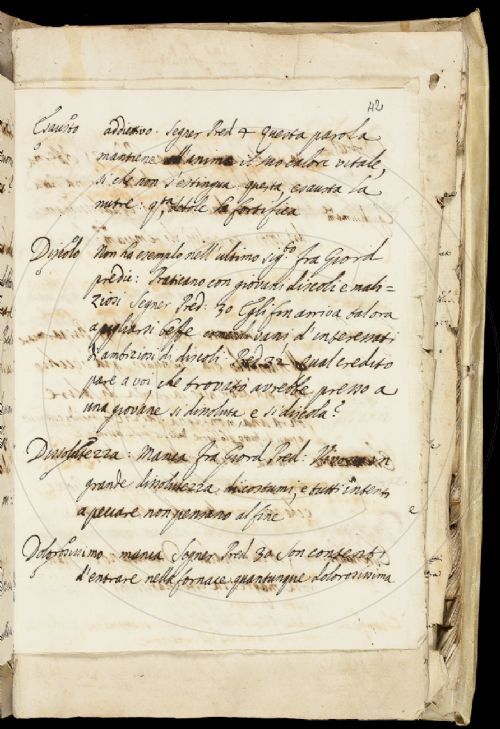 42
Esausto addiettivo. Segner Pred 4 questa parola
mantiene all'anima il suo calor vitale,
si che non s'estingua questa, esausta la
nutre: debole la fortifica
Discolo Non ha esemplo nell'ultimo sig.to fra Giord
predic: Praticano con giovani discoli e mali=
ziosi Segner Pred: 30 Egli fin arriva talora
a pigliarsi beffe di vani, d'interessati
d'ambiziosi di discoli: Pred 32 qual credito
pare a voi che trovato avrebbe presso a
una giovane si dissoluta e si discola?
Dissolutezza: Manca fra Giord Pred: Vivono in
grande dissolutezza di costumi, e tutti intenti
a peccare non pensano al fine
Dolorosissimo: manca Segner Pred 30 Son contenti
d'entrare nella fornace quantunque dolorosissima
e